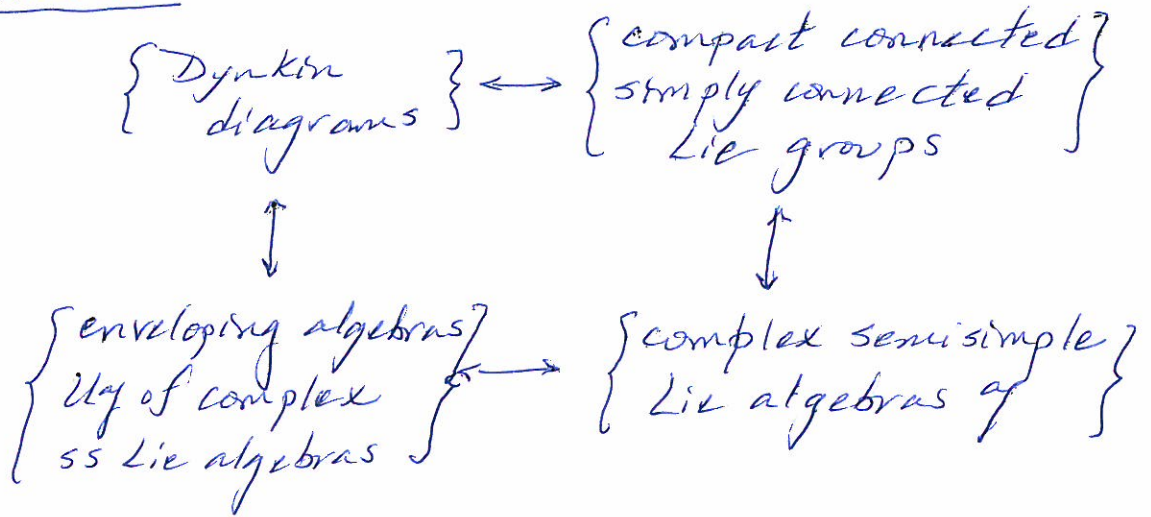 {Dynkin diagrams} ↔ {compact connected simply connected Lie groups}
↕ ↕
{enveloping algebras U𝔤 of complex ss Lie algebras} ↔ {complex semisimple Lie algebras 𝔤}